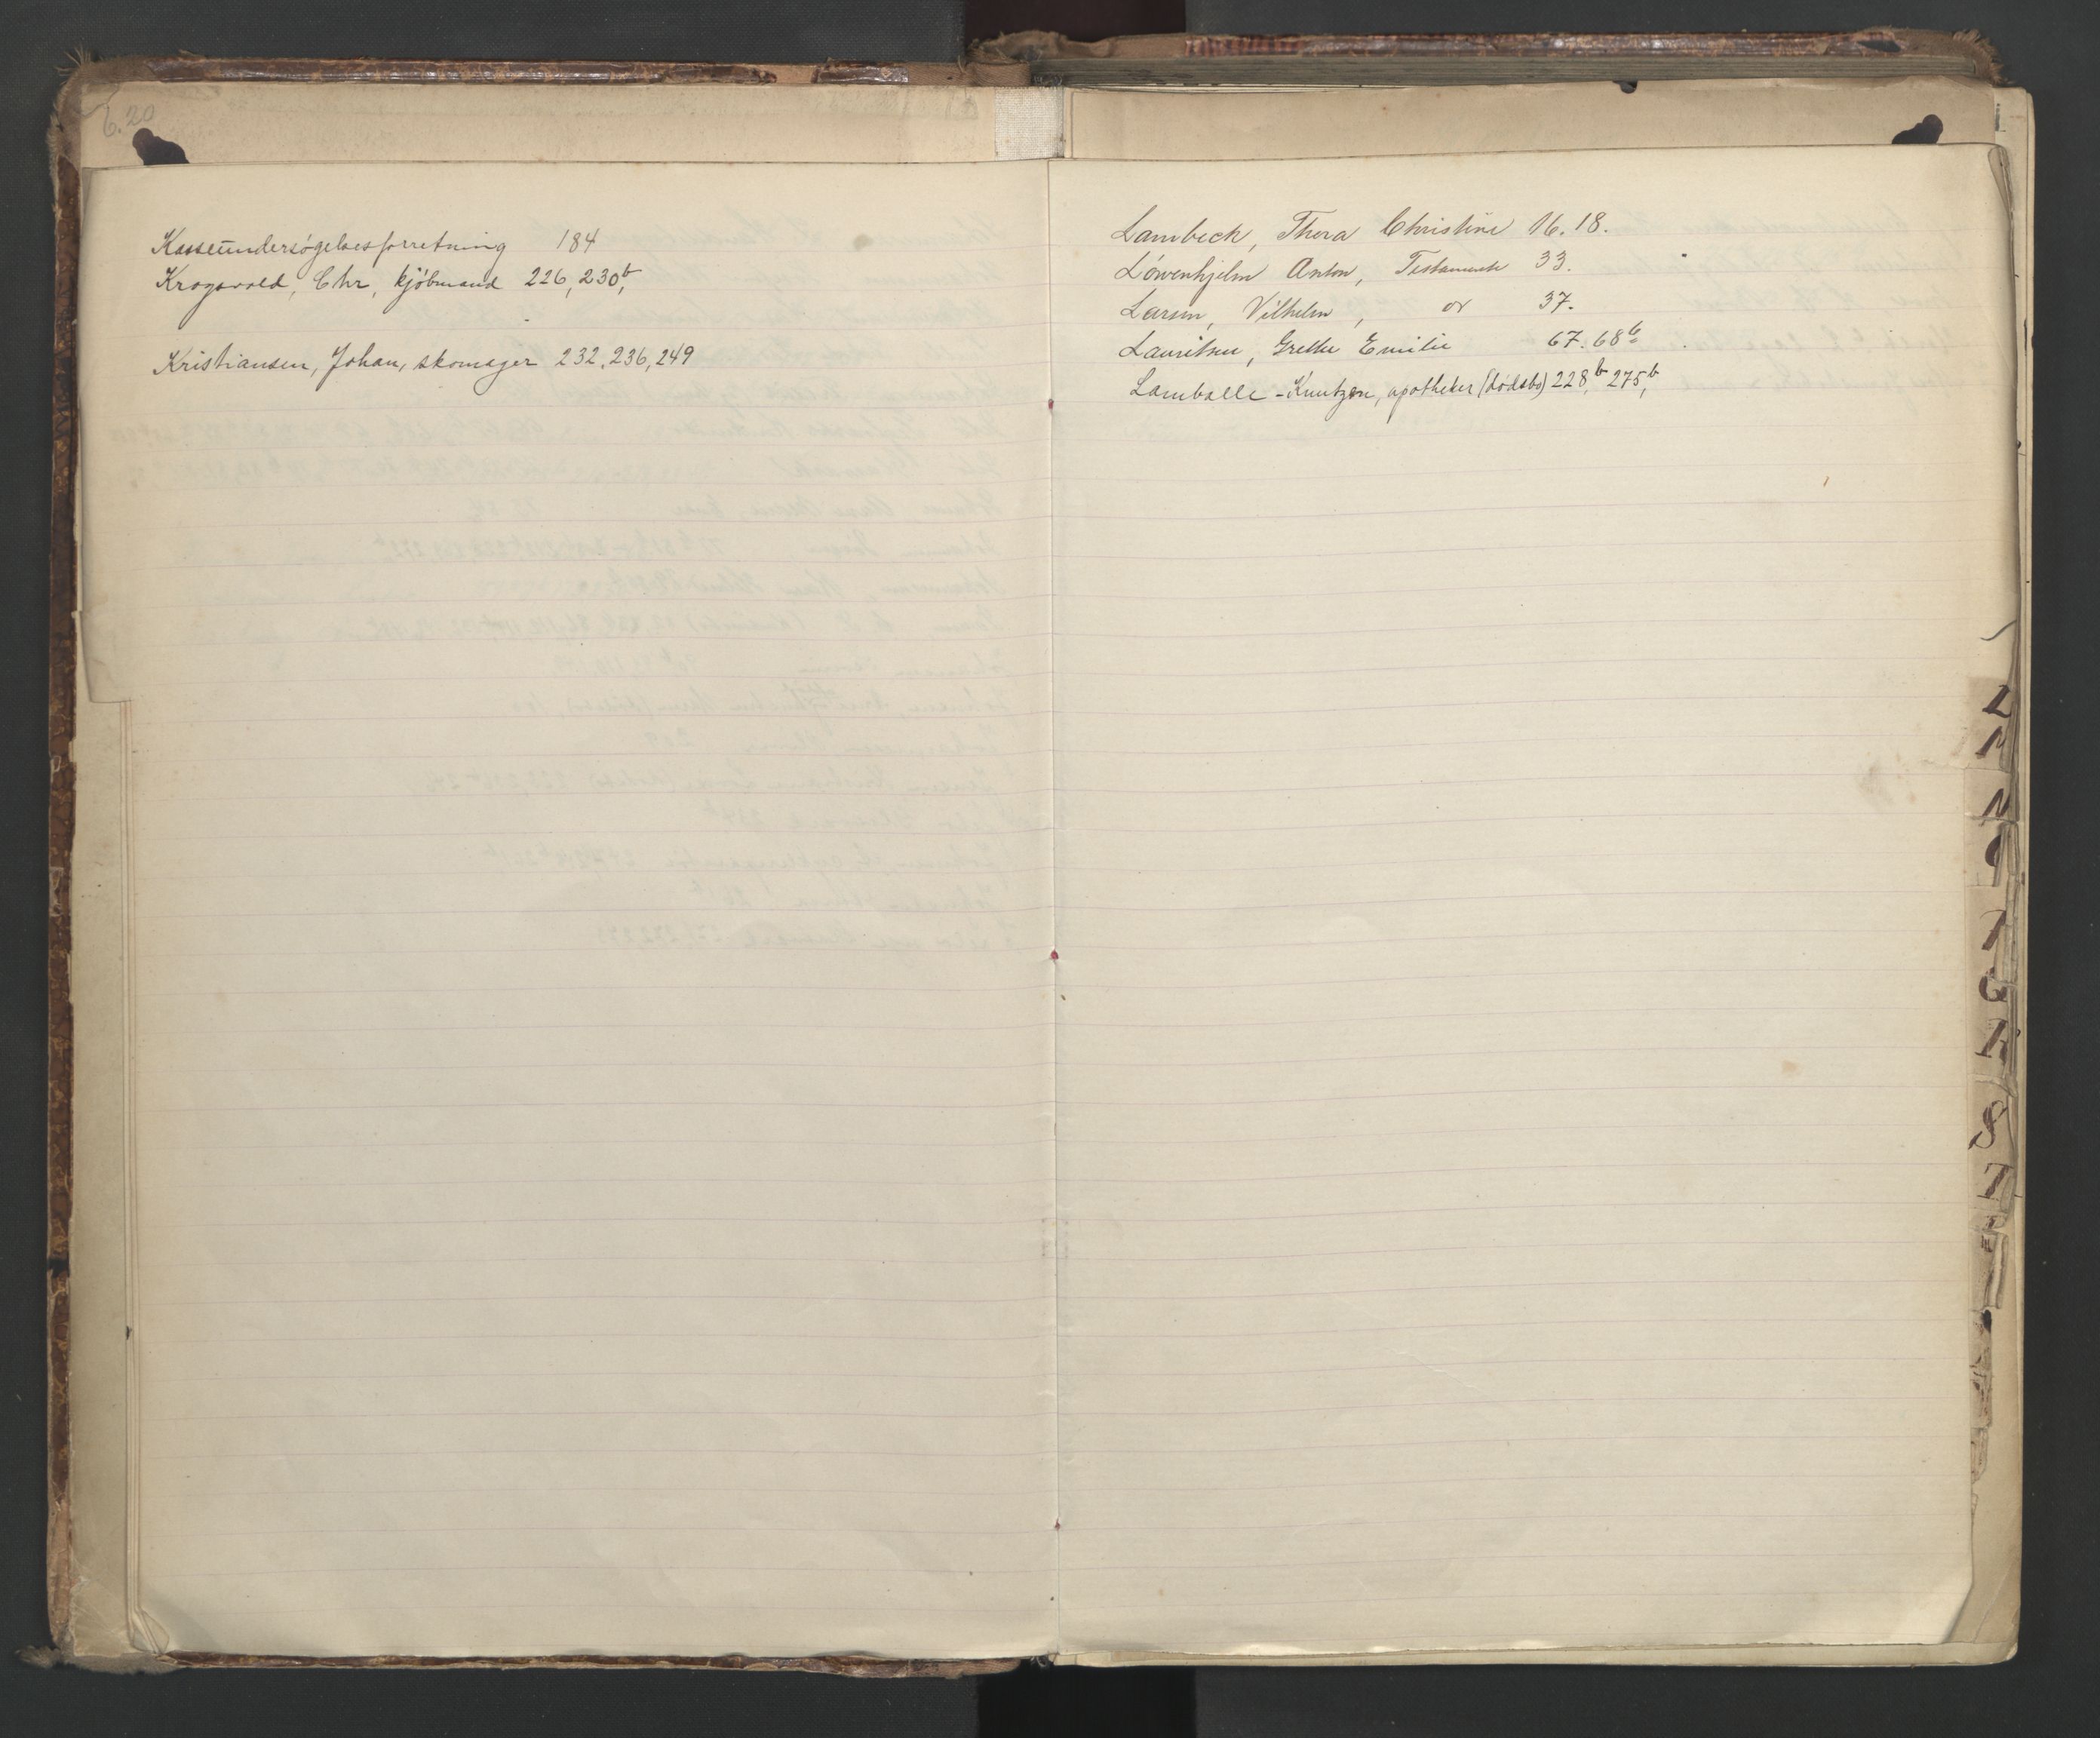 6.20
Kasseundersøgelsesforretning 184
Krogsvold, Chr, kjøbmand 226, 230b,
Kristiansen, Johan, skomager 232, 236, 249
Lambeck, Thora Christine 16. 18.
Löwenhjelm Anton, Testamente 33.
Larsen, Vilhelm, 37.
Lauritsen, Grethe Emilie 67. 68b
Lamballe-Knutzen, apotheker (dødsbo) 228,b 275,b
L
M
N